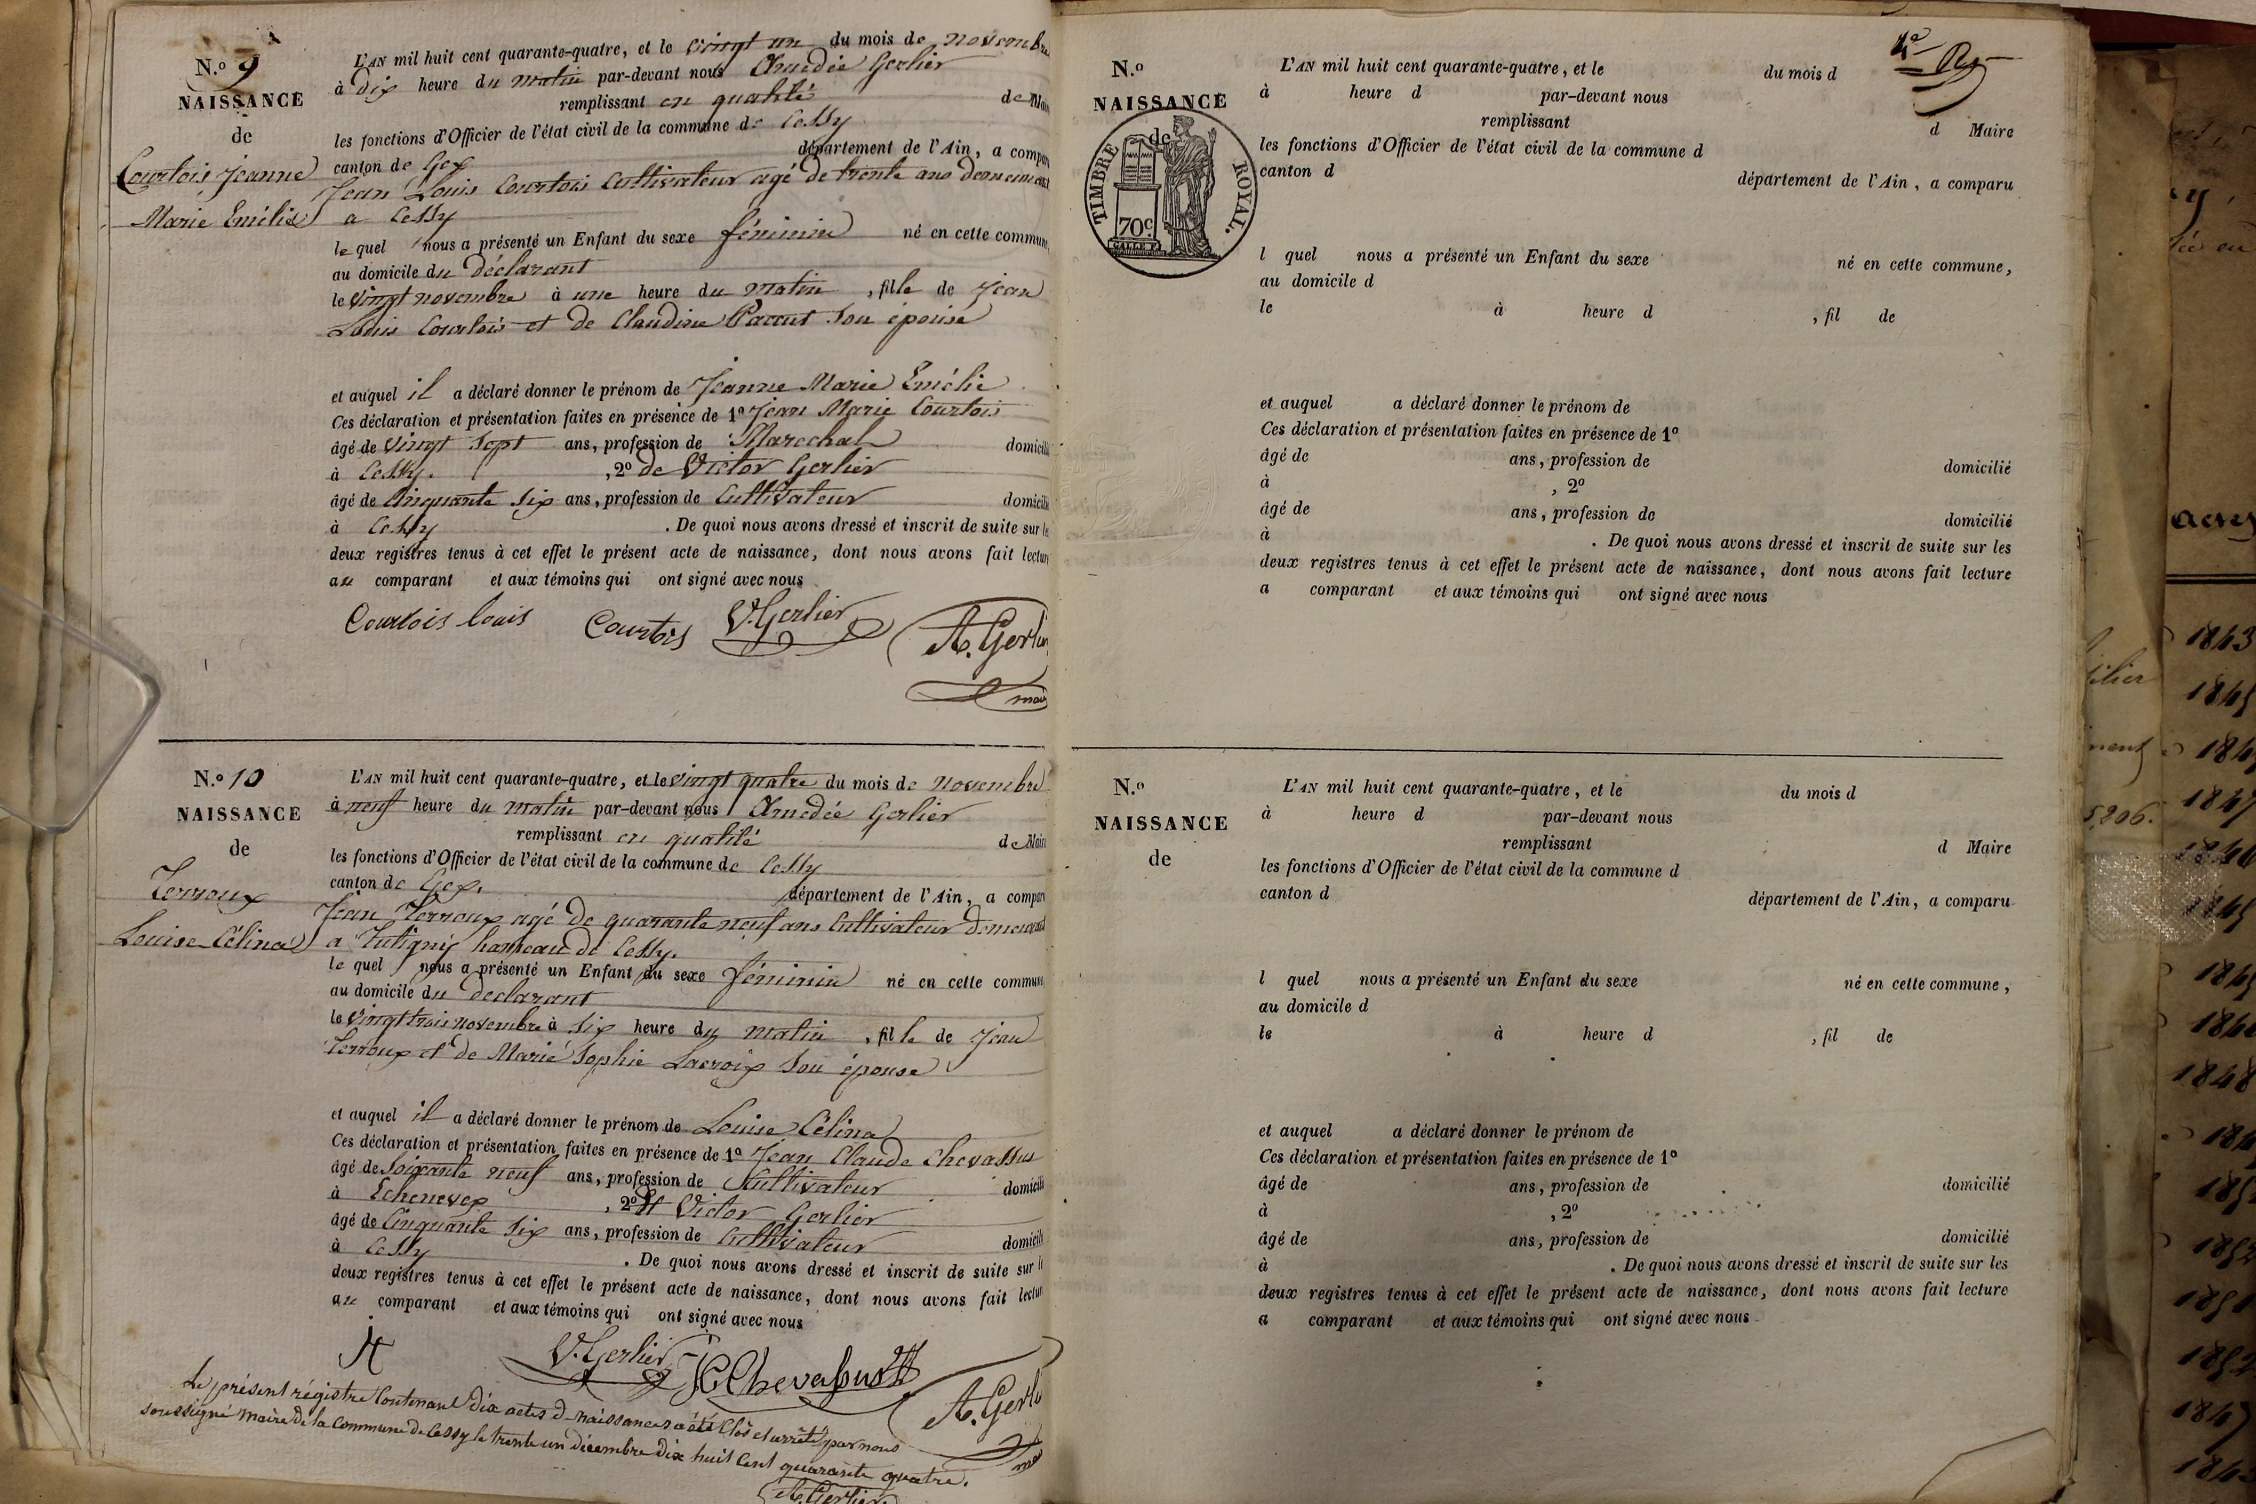 N.o 9
NAISSANCE
de
Courtois Jeanne
Marie Emélie
L'AN mil huit cent quarante-quatre, et le vingt un du mois de novembre
à dix heure du matin par-devant nous Amedée Gerlier
remplissant en qualité de Mair
les fonctions d'Officier de l'état civil de la commune de Cessy
canton de Gex département de l'Ain, a compar
Jean Louis Courtois Cultivateur agé de trente ans demeurant
a Cessy
le quel nous a présenté un Enfant du sexe féminin né en cette commune
au domicile du déclarant
le vingt novembre à une heure du matin, fille de Jean
Louis Courtois et de Claudine Paccut son épouse
et auquel il a déclaré donner le prénom de Jeanne Marie Emélie
Ces déclaration et présentation faites en présence de 1o Jean Marie Courtois
âgé de vingt sept ans, profession de Marechal domicili
à Cessy. , 2o de Victor Gerlier
âgé de Cinquante six ans, profession de Cultivateur domicili
à Cessy . De quoi nous avons dressé et inscrit de suite sur le
deux registres tenus à cet effet le présent acte de naissance, dont nous avons fait lectur
au comparant et aux témoins qui ont signé avec nous
Courtois louis Courtois V. Gerlier A. Gerlier
mair
N.o 10
NAISSANCE
de
Terroux
Louise Célina
L'AN mil huit cent quarante-quatre, et le vingt quatre du mois de novembre
à neuf heure du matin par-devant nous Amedée Gerlier
remplissant en qualité de Mair
les fonctions d'Officier de l'état civil de la commune de Cessy
canton de Gex. département de l'Ain, a compar
Jean Terroux agé de quarante neuf ans Cultivateur demeurant
a Tutigny hameau de Cessy.
le quel nous a présenté un Enfant du sexe féminin né en cette commun
au domicile du declarant
le vingt trois novembre à six heure du matin, fille de Jean
Terroux et de Marie Sophie Lacroix son épouse
et auquel il a déclaré donner le prénom de Louise Célina
Ces déclaration et présentation faites en présence de 1o Jean Claude Chevassus
âgé de soixante neuf ans, profession de Cultivateur domicili
à Echenevex , 2o et Victor Gerlier
âgé de Cinquante six ans, profession de Cultivateur domicili
à Cessy . De quoi nous avons dressé et inscrit de suite sur l
deux registres tenus à cet effet le présent acte de naissance, dont nous avons fait lectur
au comparant et aux témoins qui ont signé avec nous
V. Gerlier JC Chevassus A. Gerli
Le présent régistre Contenant dix actes de naissances a été Clos et arrêté par nous
soussigné maire de la Commune de Cessy le trente un décembre dix huit Cent quarante quatre.
A. Gerlier
N.o
NAISSANCE
de
TIMBRE ROYAL.
70c.
L'AN mil huit cent quarante-quatre, et le du mois d
à heure d par-devant nous
remplissant d Maire
les fonctions d'Officier de l'état civil de la commune d
canton d département de l'Ain, a comparu
l quel nous a présenté un Enfant du sexe né en cette commune,
au domicile d
le à heure d , fil de
et auquel a déclaré donner le prénom de
Ces déclaration et présentation faites en présence de 1o
âgé de ans, profession de domicilié
à , 2o
âgé de ans, profession de domicilié
à . De quoi nous avons dressé et inscrit de suite sur les
deux registres tenus à cet effet le présent acte de naissance, dont nous avons fait lecture
a comparant et aux témoins qui ont signé avec nous
N.o
NAISSANCE
de
L'AN mil huit cent quarante-quatre, et le du mois d
à heure d par-devant nous
remplissant d Maire
les fonctions d'Officier de l'état civil de la commune d
canton d département de l'Ain, a comparu
l quel nous a présenté un Enfant du sexe né en cette commune,
au domicile d
le à heure d , fil de
et auquel a déclaré donner le prénom de
Ces déclaration et présentation faites en présence de 1o
âgé de ans, profession de domicilié
à , 2o
âgé de ans, profession de domicilié
à . De quoi nous avons dressé et inscrit de suite sur les
deux registres tenus à cet effet le présent acte de naissance, dont nous avons fait lecture
a comparant et aux témoins qui ont signé avec nous
1843
1845
1847
1848